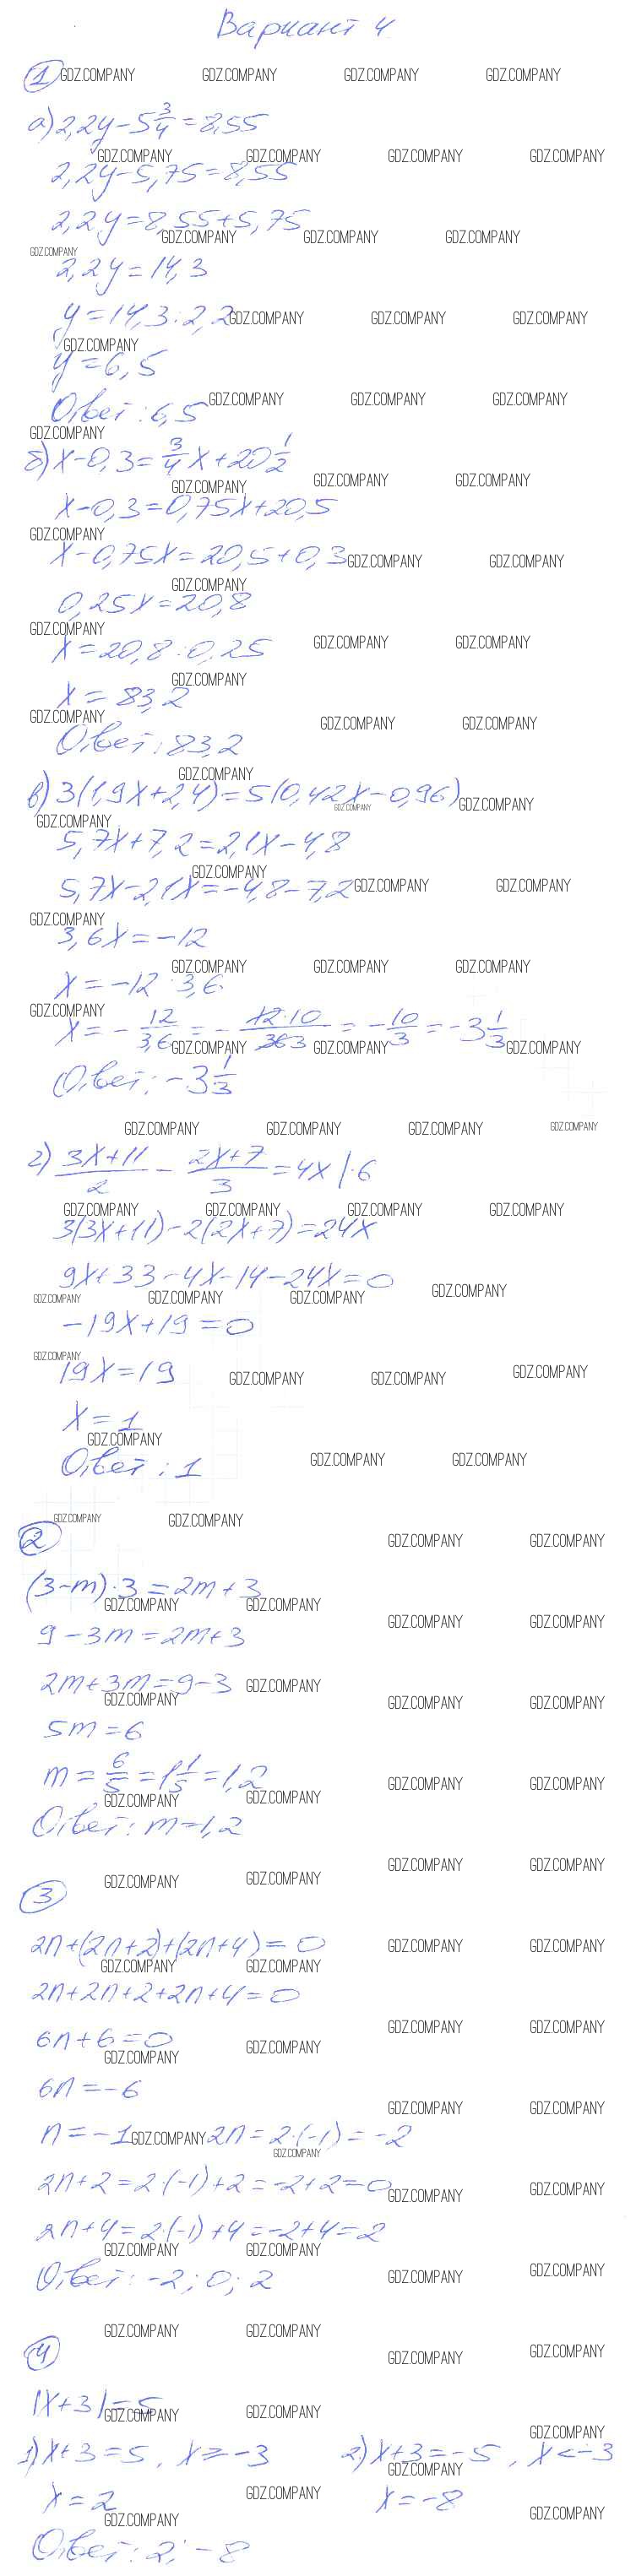 Вариант 4
① GDZ.COMPANY GDZ.COMPANY GDZ.COMPANY GDZ.COMPANY
а) 2,2y - 5 3/4 = 8,55
GDZ.COMPANY GDZ.COMPANY GDZ.COMPANY GDZ.COMPANY
2,2y - 5,75 = 8,55
2,2y = 8,55 + 5,75
GDZ.COMPANY GDZ.COMPANY GDZ.COMPANY
GDZ.COMPANY
2,2y = 14,3
y = 14,3 : 2,2 GDZ.COMPANY GDZ.COMPANY GDZ.COMPANY
GDZ.COMPANY
y = 6,5
Ответ: 6,5 GDZ.COMPANY GDZ.COMPANY GDZ.COMPANY
GDZ.COMPANY
б) x - 0,3 = 3/4 x + 20 1/2
GDZ.COMPANY GDZ.COMPANY GDZ.COMPANY
x - 0,3 = 0,75x + 20,5
GDZ.COMPANY
x - 0,75x = 20,5 + 0,3 GDZ.COMPANY GDZ.COMPANY
GDZ.COMPANY
0,25x = 20,8
GDZ.COMPANY GDZ.COMPANY GDZ.COMPANY
x = 20,8 : 0,25
GDZ.COMPANY
x = 83,2
GDZ.COMPANY GDZ.COMPANY GDZ.COMPANY
Ответ: 83,2
GDZ.COMPANY
в) 3(1,9x + 2,4) = 5(0,42x - 0,96) GDZ.COMPANY GDZ.COMPANY
GDZ.COMPANY
5,7x + 7,2 = 2,1x - 4,8
GDZ.COMPANY
5,7x - 2,1x = -4,8 - 7,2 GDZ.COMPANY GDZ.COMPANY
GDZ.COMPANY
3,6x = -12
GDZ.COMPANY GDZ.COMPANY GDZ.COMPANY
x = -12 : 3,6
GDZ.COMPANY
x = - 12/3,6 = - 12·10/36 3 = - 10/3 = -3 1/3
GDZ.COMPANY GDZ.COMPANY GDZ.COMPANY
Ответ: -3 1/3
GDZ.COMPANY GDZ.COMPANY GDZ.COMPANY GDZ.COMPANY
г) 3x+11/2 - 2x+7/3 = 4x |·6
GDZ.COMPANY GDZ.COMPANY GDZ.COMPANY GDZ.COMPANY
3(3x+11) - 2(2x+7) = 24x
9x + 33 - 4x - 14 - 24x = 0 GDZ.COMPANY
GDZ.COMPANY GDZ.COMPANY GDZ.COMPANY
-19x + 19 = 0
GDZ.COMPANY
19x = 19 GDZ.COMPANY GDZ.COMPANY GDZ.COMPANY
x = 1
GDZ.COMPANY
Ответ: 1 GDZ.COMPANY GDZ.COMPANY
GDZ.COMPANY GDZ.COMPANY
② GDZ.COMPANY GDZ.COMPANY
(3-m)·3 = 2m + 3
GDZ.COMPANY GDZ.COMPANY
GDZ.COMPANY GDZ.COMPANY
9 - 3m = 2m + 3
2m + 3m = 9 - 3 GDZ.COMPANY
GDZ.COMPANY GDZ.COMPANY GDZ.COMPANY
5m = 6
m = 6/5 = 1 1/5 = 1,2 GDZ.COMPANY GDZ.COMPANY
GDZ.COMPANY GDZ.COMPANY
Ответ: m = 1,2
GDZ.COMPANY GDZ.COMPANY
GDZ.COMPANY GDZ.COMPANY
③
2n + (2n+2) + (2n+4) = 0 GDZ.COMPANY GDZ.COMPANY
GDZ.COMPANY GDZ.COMPANY
2n + 2n + 2 + 2n + 4 = 0
GDZ.COMPANY GDZ.COMPANY
6n + 6 = 0 GDZ.COMPANY
GDZ.COMPANY
6n = -6
GDZ.COMPANY GDZ.COMPANY
n = -1 GDZ.COMPANY 2n = 2·(-1) = -2
GDZ.COMPANY
2n + 2 = 2·(-1) + 2 = -2 + 2 = 0 GDZ.COMPANY GDZ.COMPANY
2n + 4 = 2·(-1) + 4 = -2 + 4 = 2
GDZ.COMPANY GDZ.COMPANY
Ответ: -2; 0; 2 GDZ.COMPANY GDZ.COMPANY
GDZ.COMPANY GDZ.COMPANY
④ GDZ.COMPANY GDZ.COMPANY
|x+3| = 5
GDZ.COMPANY GDZ.COMPANY
GDZ.COMPANY
1) x+3 = 5, x ≥ -3 2) x+3 = -5, x < -3
GDZ.COMPANY
x = 2 GDZ.COMPANY x = -8
GDZ.COMPANY GDZ.COMPANY
Ответ: 2; -8